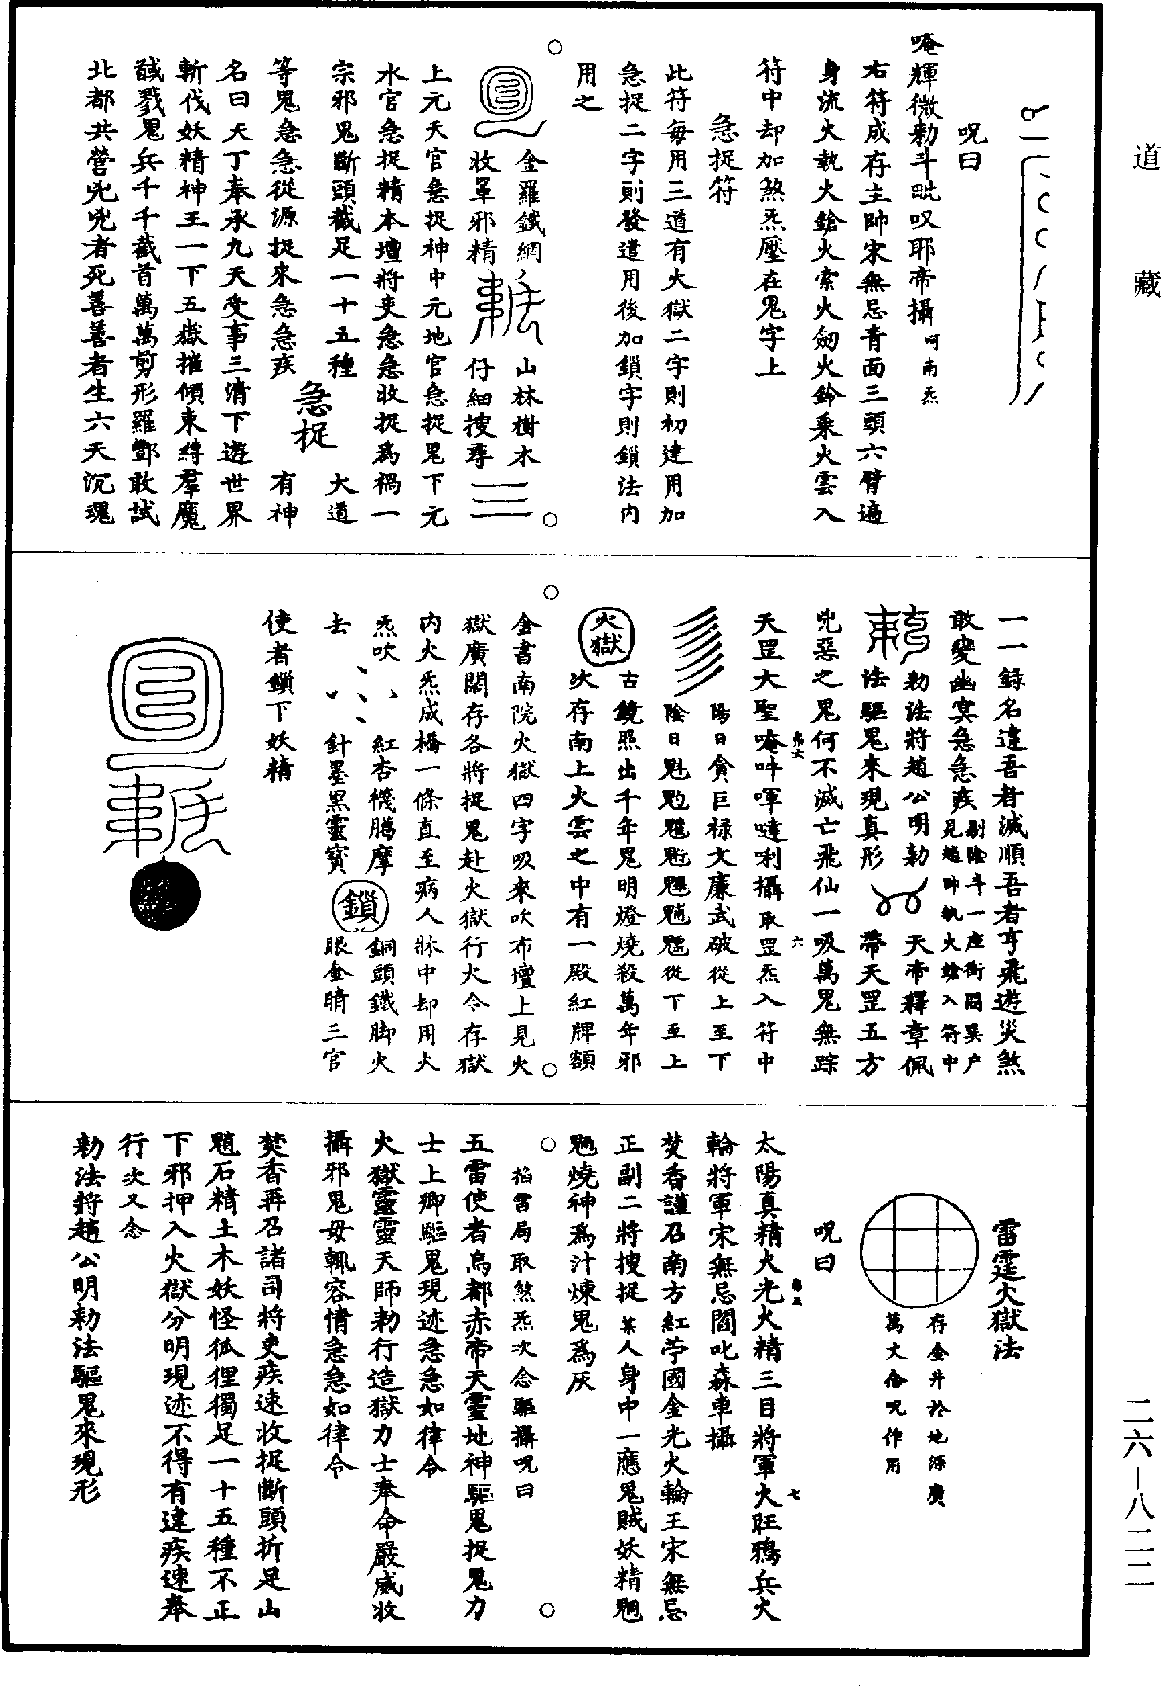 道藏
呪曰
唵輝微勑斗毗叹耶帝攝呵南炁
右符成存主帥宋無忌青面三頭六臂遍
身流火執火鎗火索火劒火鈴乘火雲入
符中却加煞炁壓在鬼字上
急捉符
此符每用三道有火獄二字則初建用加
急捉二字則發遣用後加鎖字則鎖法内
用之
金羅鐵網山林樹木
收罩邪精仔細搜尋
上元天官急捉神中元地官急捉鬼下元
水官急捉精本壇將吏急急收捉爲禍一
宗邪鬼斷頭截足一十五種大道
急捉
等鬼急急從源捉來急急疾有神
名曰天丁奉承九天受事三清下遊世界
斬伐妖精神王一下五嶽摧傾束縛羣魔
馘戮鬼兵千千截首萬萬剪形羅酆敢試
北都共營兇兇者死善善者生六天沉魂
一一錄名違吾者滅順吾者亨飛遊災煞
敢變幽冥急急疾剔除斗一座衝開巽户見趙帥執火鎗入符中
勑法將趙公明勑天帝釋章佩
法驅鬼來現真形帶天罡五方
兇惡之鬼何不滅亡飛仙一吸萬鬼無踪
天罡大聖唵吽㖇噠唎攝取罡炁入符中
陽日貪巨祿文廉武破從上至下
陰日魁𩲃䰢魓䰡魒魑從下至上
火獄
古鏡照出千年鬼明燈燒殺萬年邪
次存南上火雲之中有一殿紅牌額
金書南院火獄四字吸來吹布壇上見火
獄廣闊存各將捉鬼赴火獄行火令存獄
内火炁成橋一條直至病人牀中却用火
炁吹紅杏機騰摩銅頭鐵脚火
鎖
去針墨黑靈寶眼金睛三官
使者鎖下妖精
雷霆火獄法
存金井於地深廣
萬丈念呪作用
呪曰
太陽真精火光火精三目將軍火旺鴉兵火
輪將軍宋無忌閻叱森車攝
焚香謹召南方紅芓國金光火輪王宋無忌
正副二將搜捉某人身中一應鬼賊妖精魍
魎燒神爲汁煉鬼爲灰
掐雷局取煞炁次念驅攝呪曰
五雷使者烏都赤帝天靈地神驅鬼捉鬼力
士上卿驅鬼現迹急急如律令
火獄靈靈天師勑行造獄力士奉命嚴威收
攝邪鬼毋輒容情急急如律令
焚香再召諸司將吏疾速收捉斷頭折足山
魈石精土木妖怪狐狸獨足一十五種不正
下邪押入火獄分明現迹不得有違疾速奉
行次又念
勑法將趙公明勑法驅鬼來現形
二六—八二二